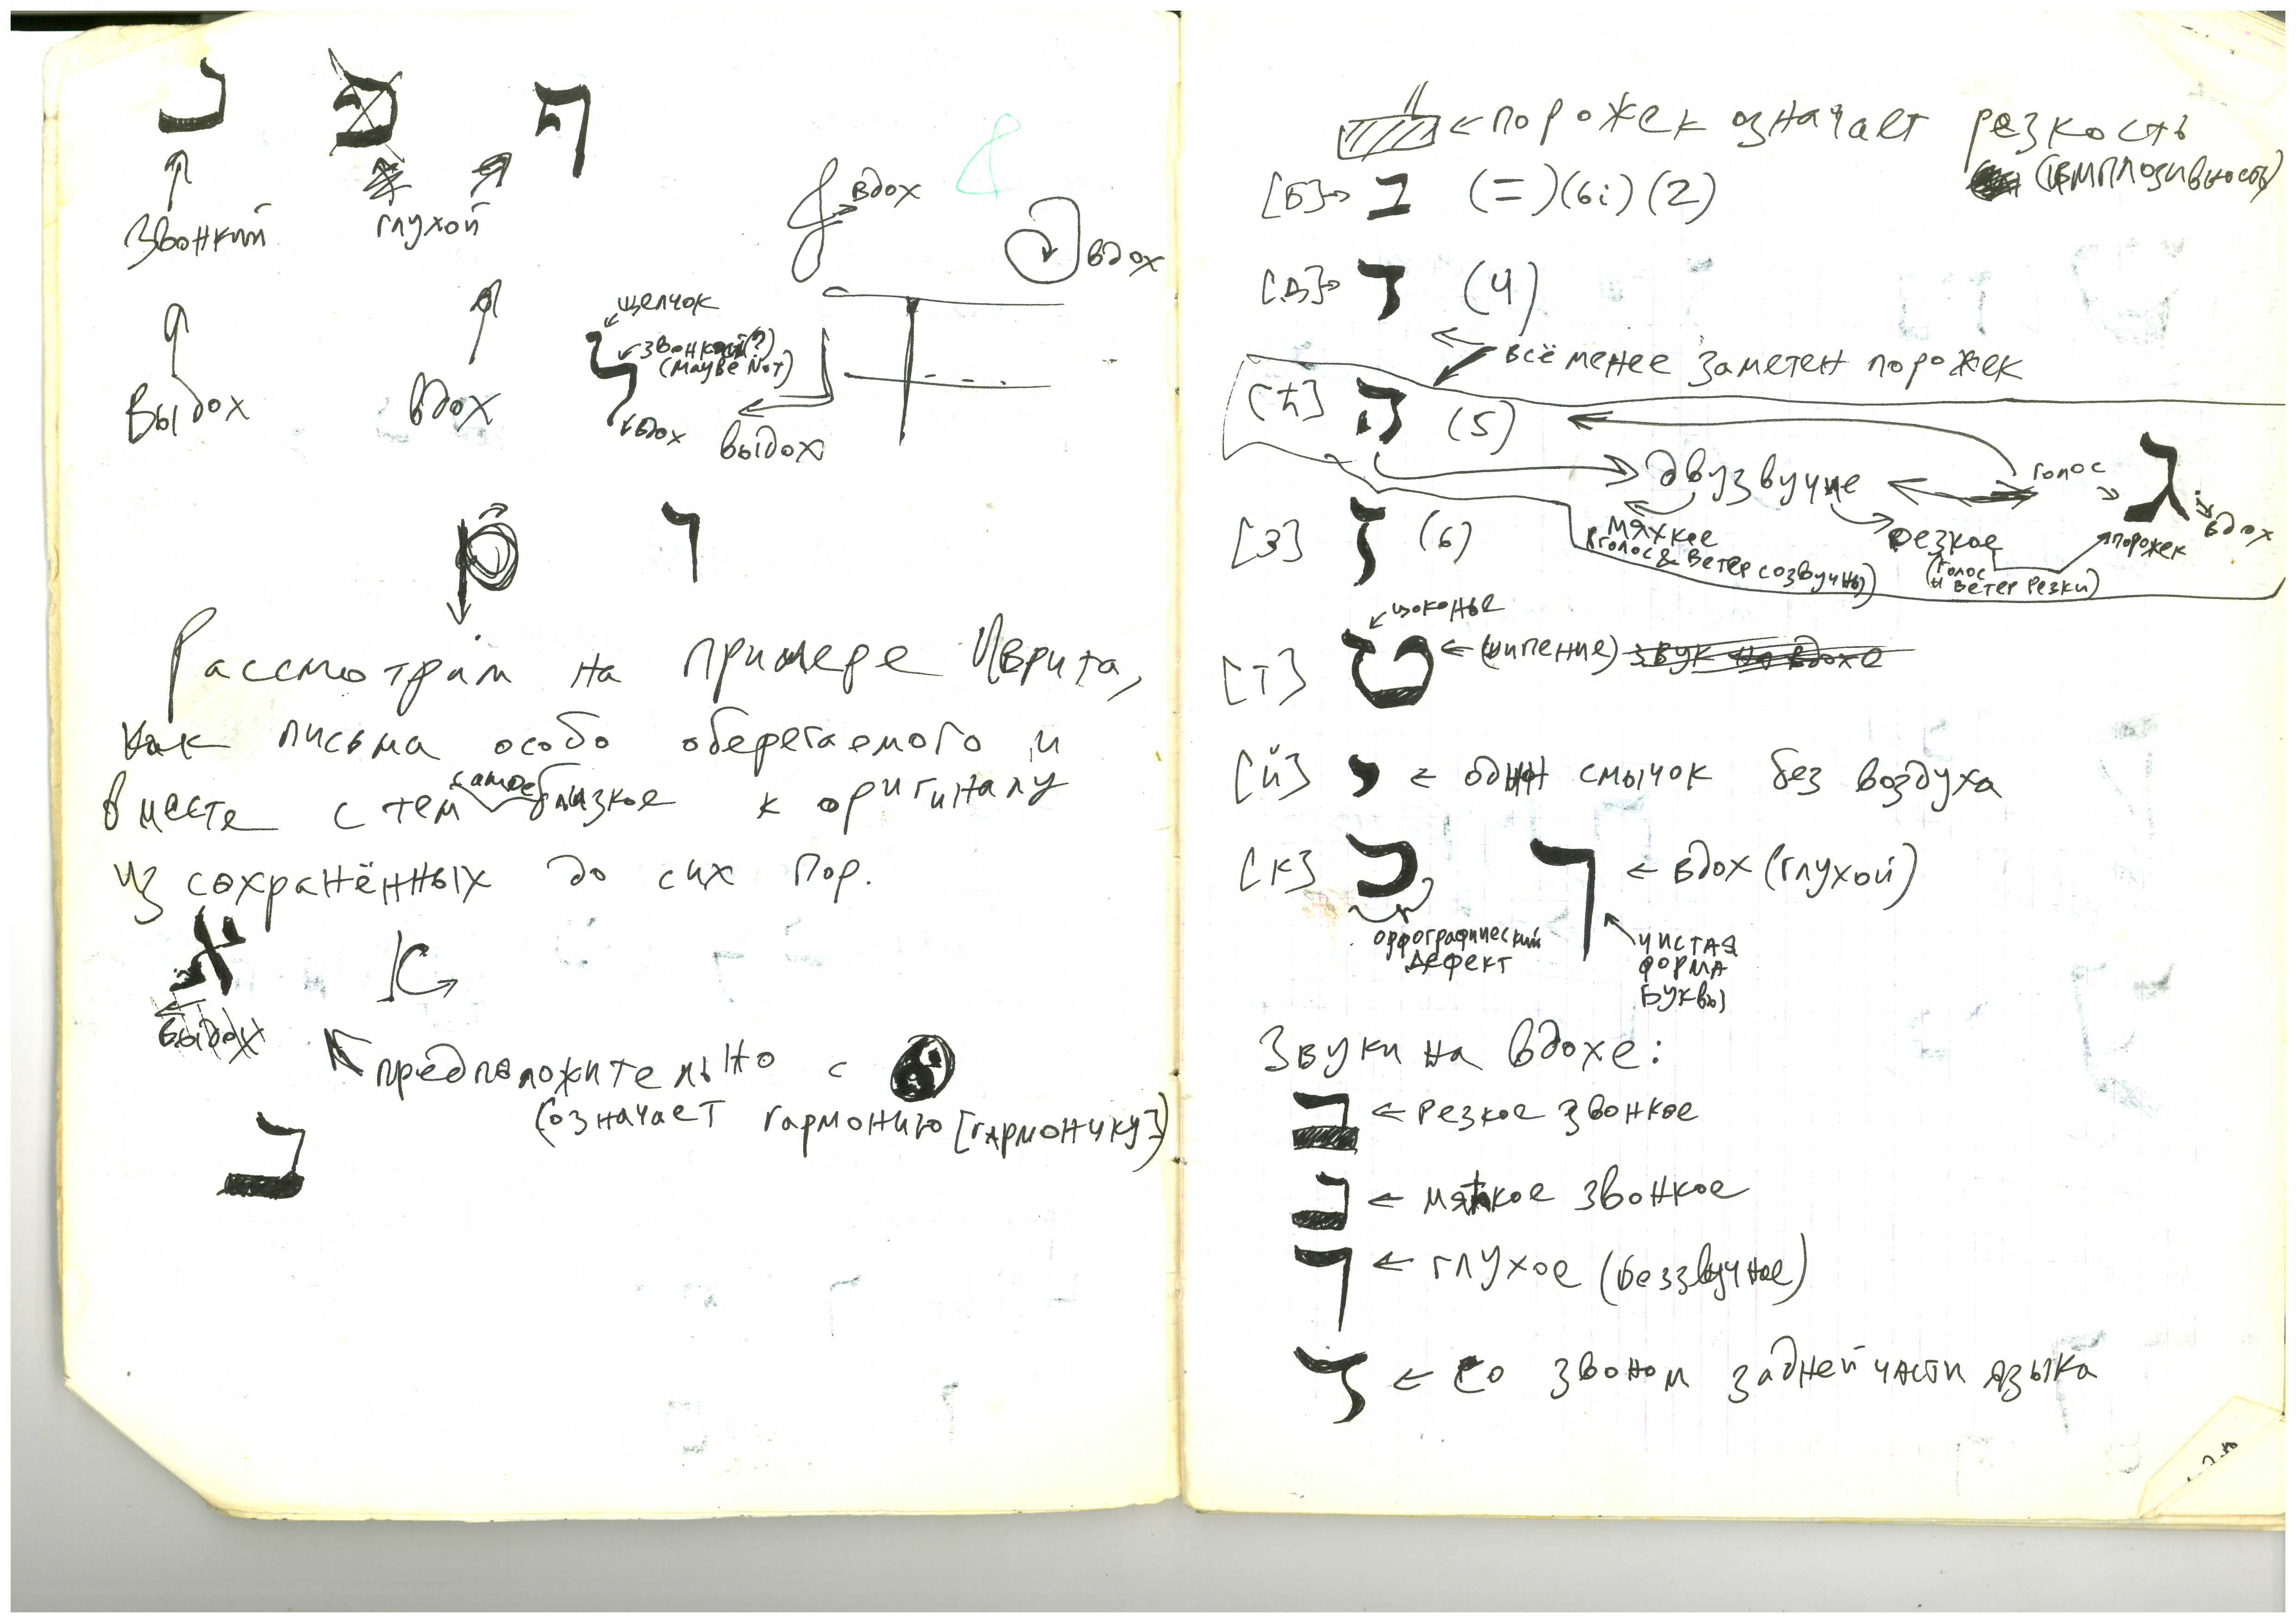 נ פ ק
звонкий глухой
вдох
вдох
выдох вдох
щелчок
звонкий(?)
(мауве Not)
вдох
выдох
ר
Рассмотрим на примере Иврита,
как письма особо оберегаемого и
вместе с тем самое близкое к оригиналу
из сохранённых до сих пор.
א
выдох
предположительно с ☯
(означает гармонию [гармонику])
ב
← порожек означает резкость
(имплозивность)
[Б]→ ב (=)(bi)(2)
[Д]→ ד (4)
всё менее заметен порожек
[ћ] ה (5)
двузвучие
голос
ג
вдох
порожек
мяхкое
(голос & ветер созвучны)
резкое
(голос и ветер резки)
[З] ז (6)
цоконье
[Т] ט ← (шипение) звук на вдохе
[й] י ← один смычок без воздуха
[К] כ ך ← вдох (глухой)
орфографический
дефект
чистая
форма
буквы
Звуки на вдохе:
ב ← резкое звонкое
נ ← мяхкое звонкое
ך ← глухое (беззвучное)
← со звоном задней части языка